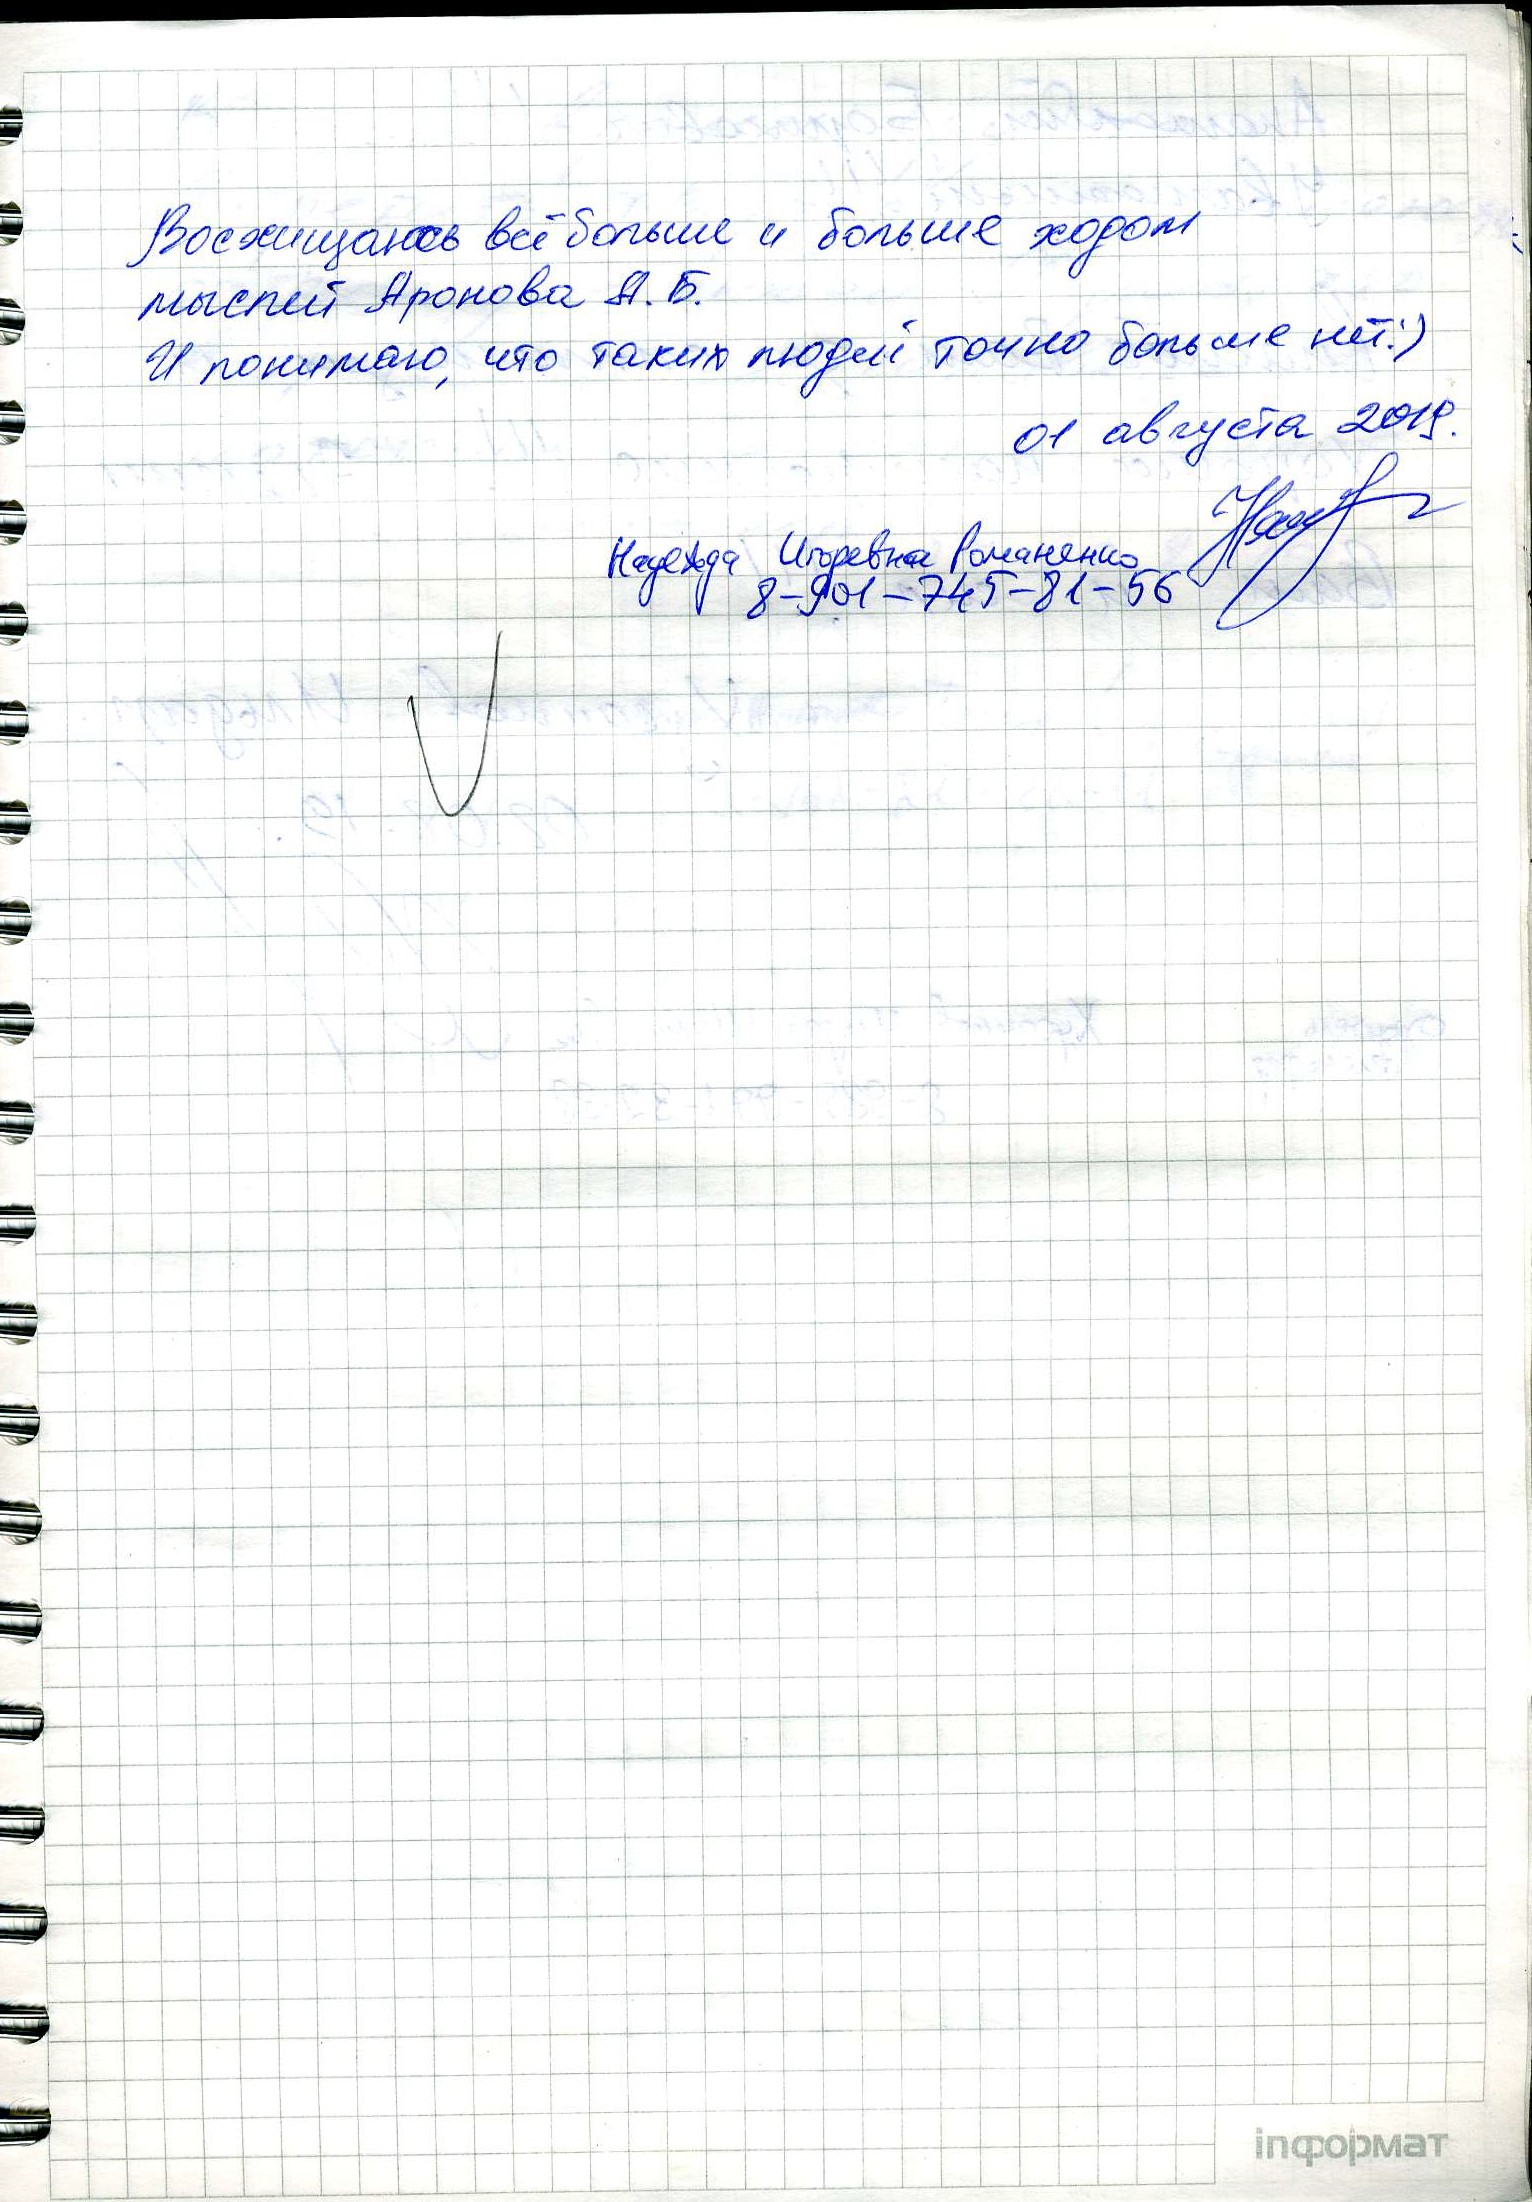 Восхищаюсь всё больше и больше ходом
мыслей Аронова А.Б.
И понимаю, что таких людей точно больше нет:)
01 августа 2019.
Надежда Игоревна Романенко
8-901-745-81-56
inформат